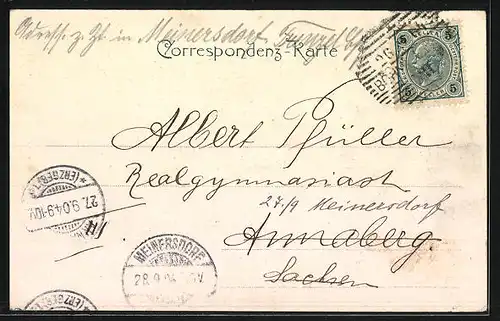 Adresse z. Zt. in Meinersdorf
Correspondenz-Karte
5 5
Albert Pfüller
Realgymnasiast
27/9 Meinersdorf
Annaberg
Sachsen
(ERZGEB.)
27.9.04.9-10V.
MEINERSDORF
28.9.04
(ERZGEB.)